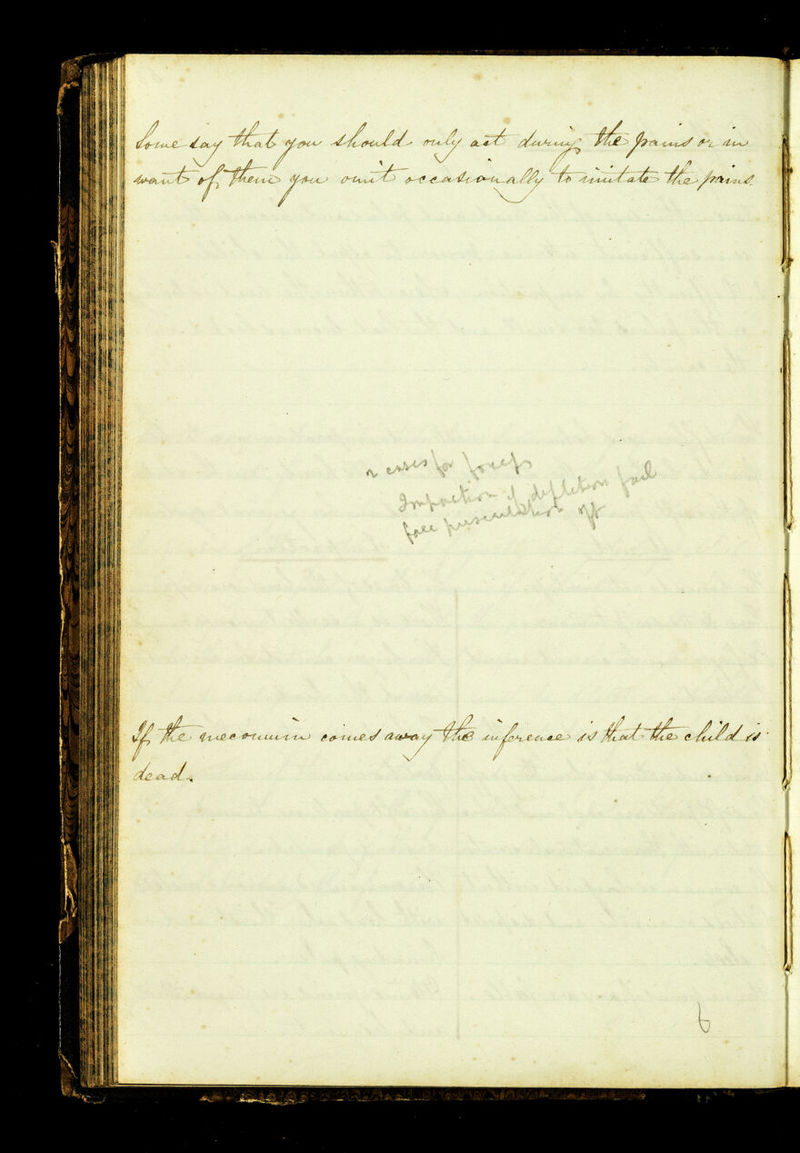 Some say that you should only act during the pains or in
want of them you omit occasionally to imitate the pains.
cases for forceps
Impaction if depletion fail
face presentation
If the meconium comes away the inference is that the child is
dead.